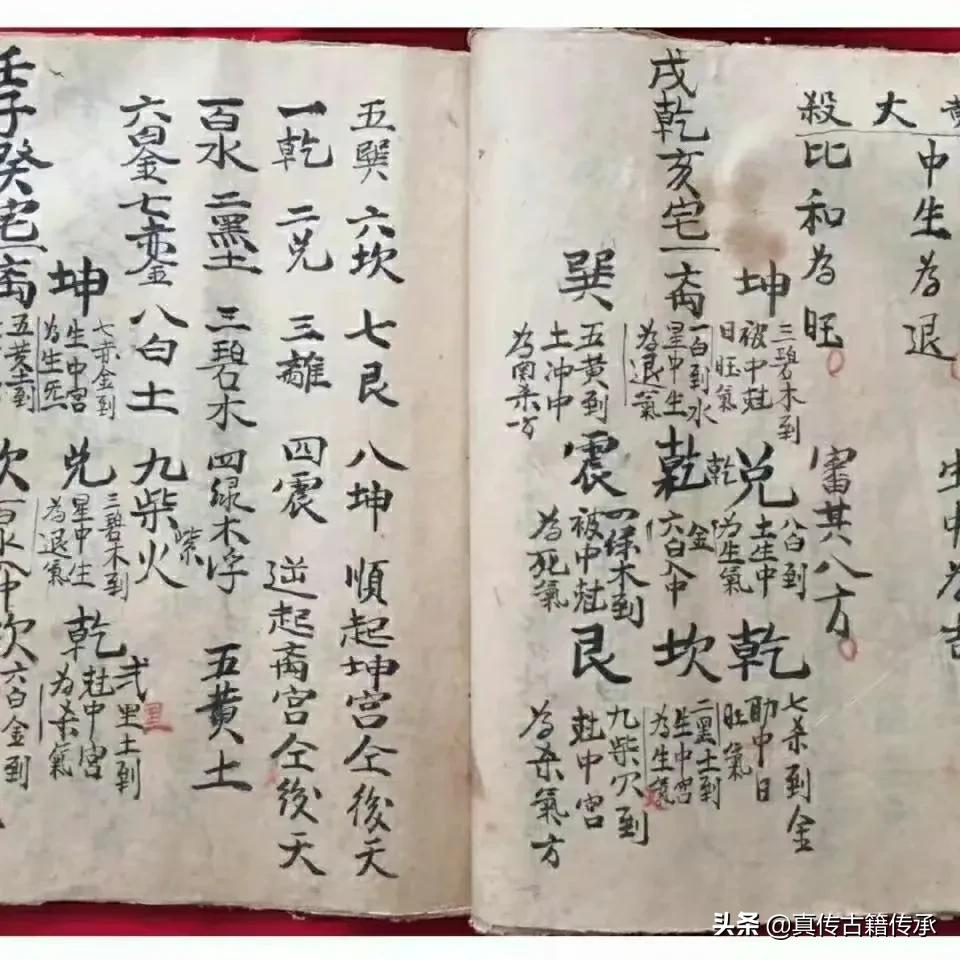 黄大殺
中生為退
生中為吉
比和為旺
審其八方
戌乾亥宅一
坤
三碧木到
被中尅
日旺氣
兌
八白到
土生中
為生氣
乾
七杀到金
助中日
旺氣
一白到水
星中生
為退氣
乾
乾
六白入中
金
坎
二黑土到
生中宮
為生氣
巽
五黄到
土冲中
為関杀方
震
四绿木到
被中尅
為死氣
艮
九柴穴到
尅中宮
為杀氣方
五巽 六坎 七艮 八坤 順起坤宮仝後天
一乾 二兌 三離 四震 逆起离宮仝後天
百水 二黑土 三碧木 四绿木浮 五黄土
六白金 七赤金 八白土 九柴火
紫
坤
七赤金到
生中宮
為生炁
兌
三碧木到
星中生
為退氣
乾
弍里土到
黑
尅中宮
為杀氣
壬子癸宅一
五黄土到
坎
入中
坎
六白金到
头条 @真传古籍传承